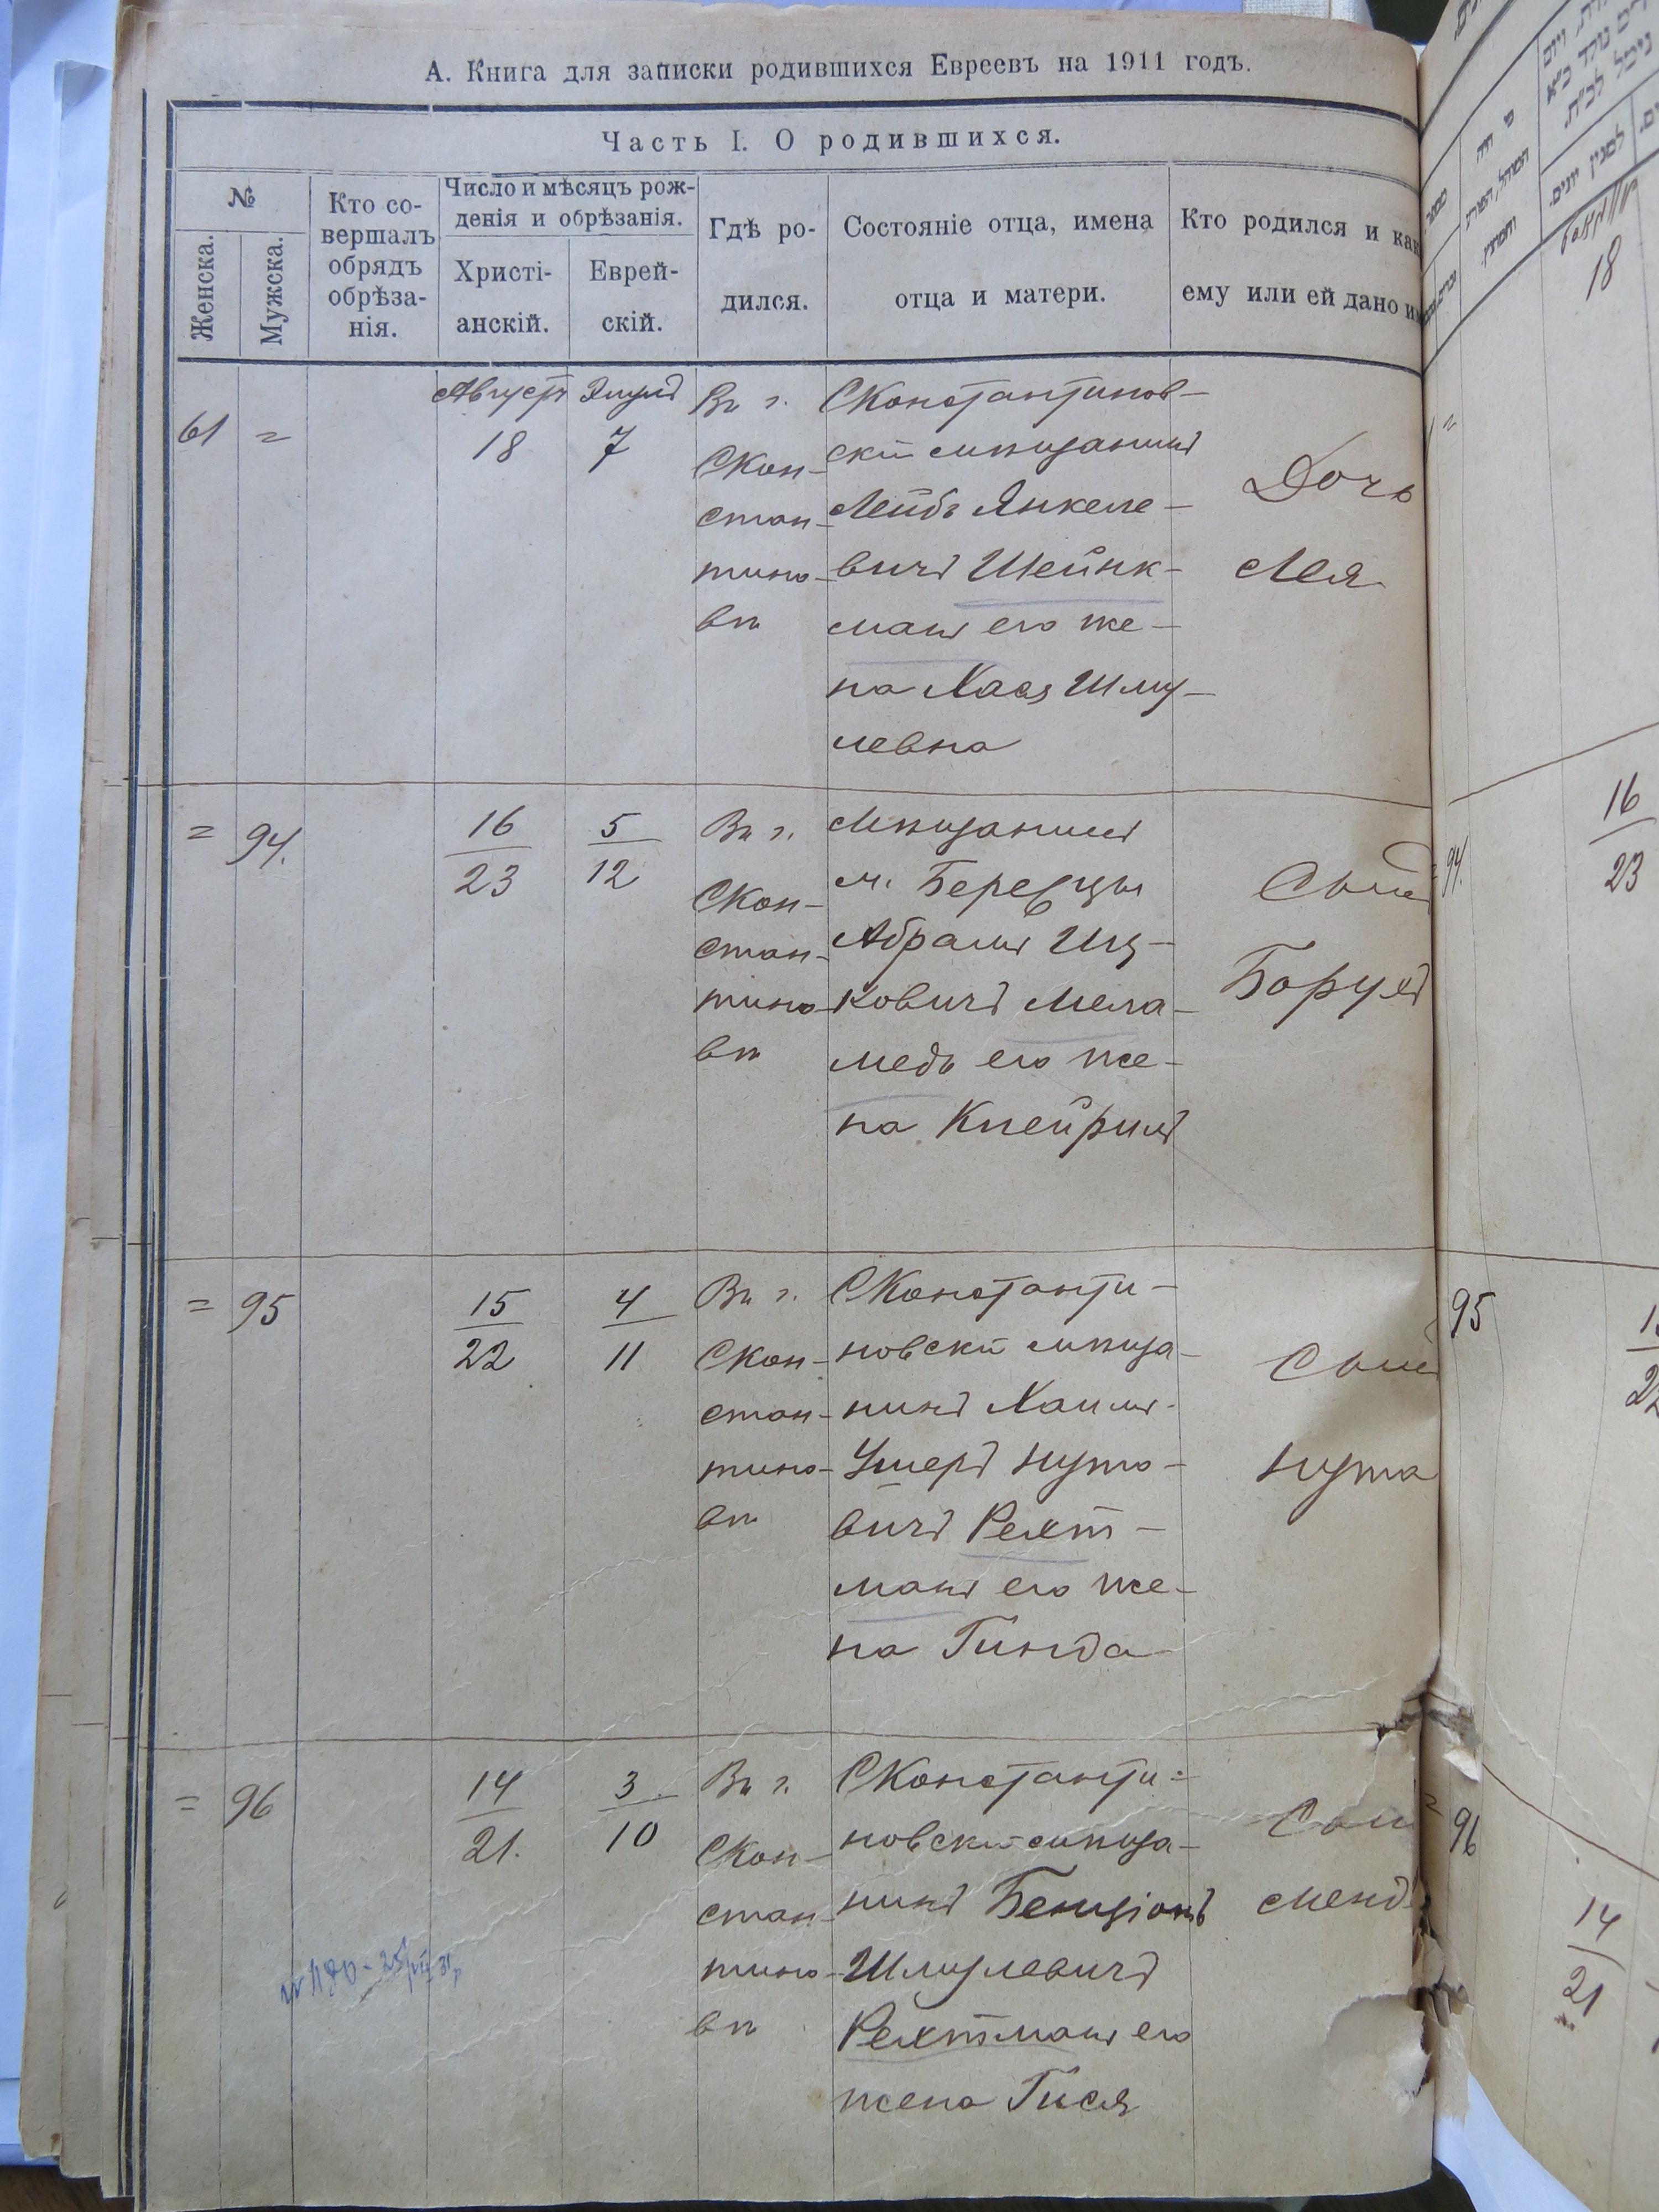 А. Книга для записки родившихся Евреевъ на 1911 годъ.
Часть I. О родившихся.
№
Женска.
Мужска.
Кто со-
вершалъ
обрядъ
обрѣза-
нія.
Число и мѣсяцъ рож-
денія и обрѣзанія.
Христі-
анскій.
Еврей-
скій.
Гдѣ ро-
дился.
Состояніе отца, имена
отца и матери.
Кто родился и как
ему или ей дано
61 =
Августъ
18
Элулъ
7
Въ г.
Скон-
стан-
тино-
вѣ
СКонстантинов-
скій мѣщанинъ
Лейбъ Янкеле-
вичъ Шейнк-
манъ его же-
на Хася Шму-
левна
Дочь
Лея
= 94.
16
23
5
12
Въ г.
Скон-
стан-
тино-
вѣ
Мѣщанинъ
м. Березцы
Абрамъ Иц-
ковичъ Мела-
медъ его же-
на Кнейрил
Сынъ
Борухъ
= 95
15
22
4
11
Въ г.
Скон-
стан-
тино-
вѣ
СКонстанти-
новскій мѣща-
нинъ Хаимъ-
Ушеръ Нуто-
вичъ Рехт-
манъ его же-
на Гинда
Сынъ
Нута
= 96
14
21.
3
10
Въ г.
Скон-
стан-
тино-
вѣ
СКонстанти-
новскій мѣща-
нинъ Бенціонъ
Шмулевичъ
Рехтманъ его
жена Гися
Сын
Менд
18
94.
16
23
95
96
14
21